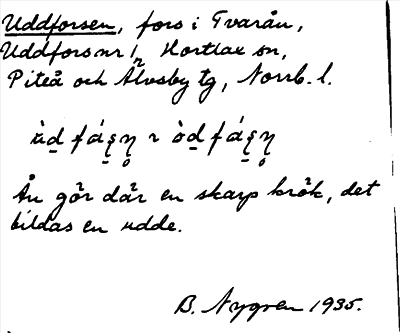 Uddforsen, fors i Tvarån,
Uddfors nr 1, Hortlax sn,
Piteå och Älvsby tg, Norrb. l.
Ån gör där en skarp krök, det
bildas en udde.
B. Nygren 1935.